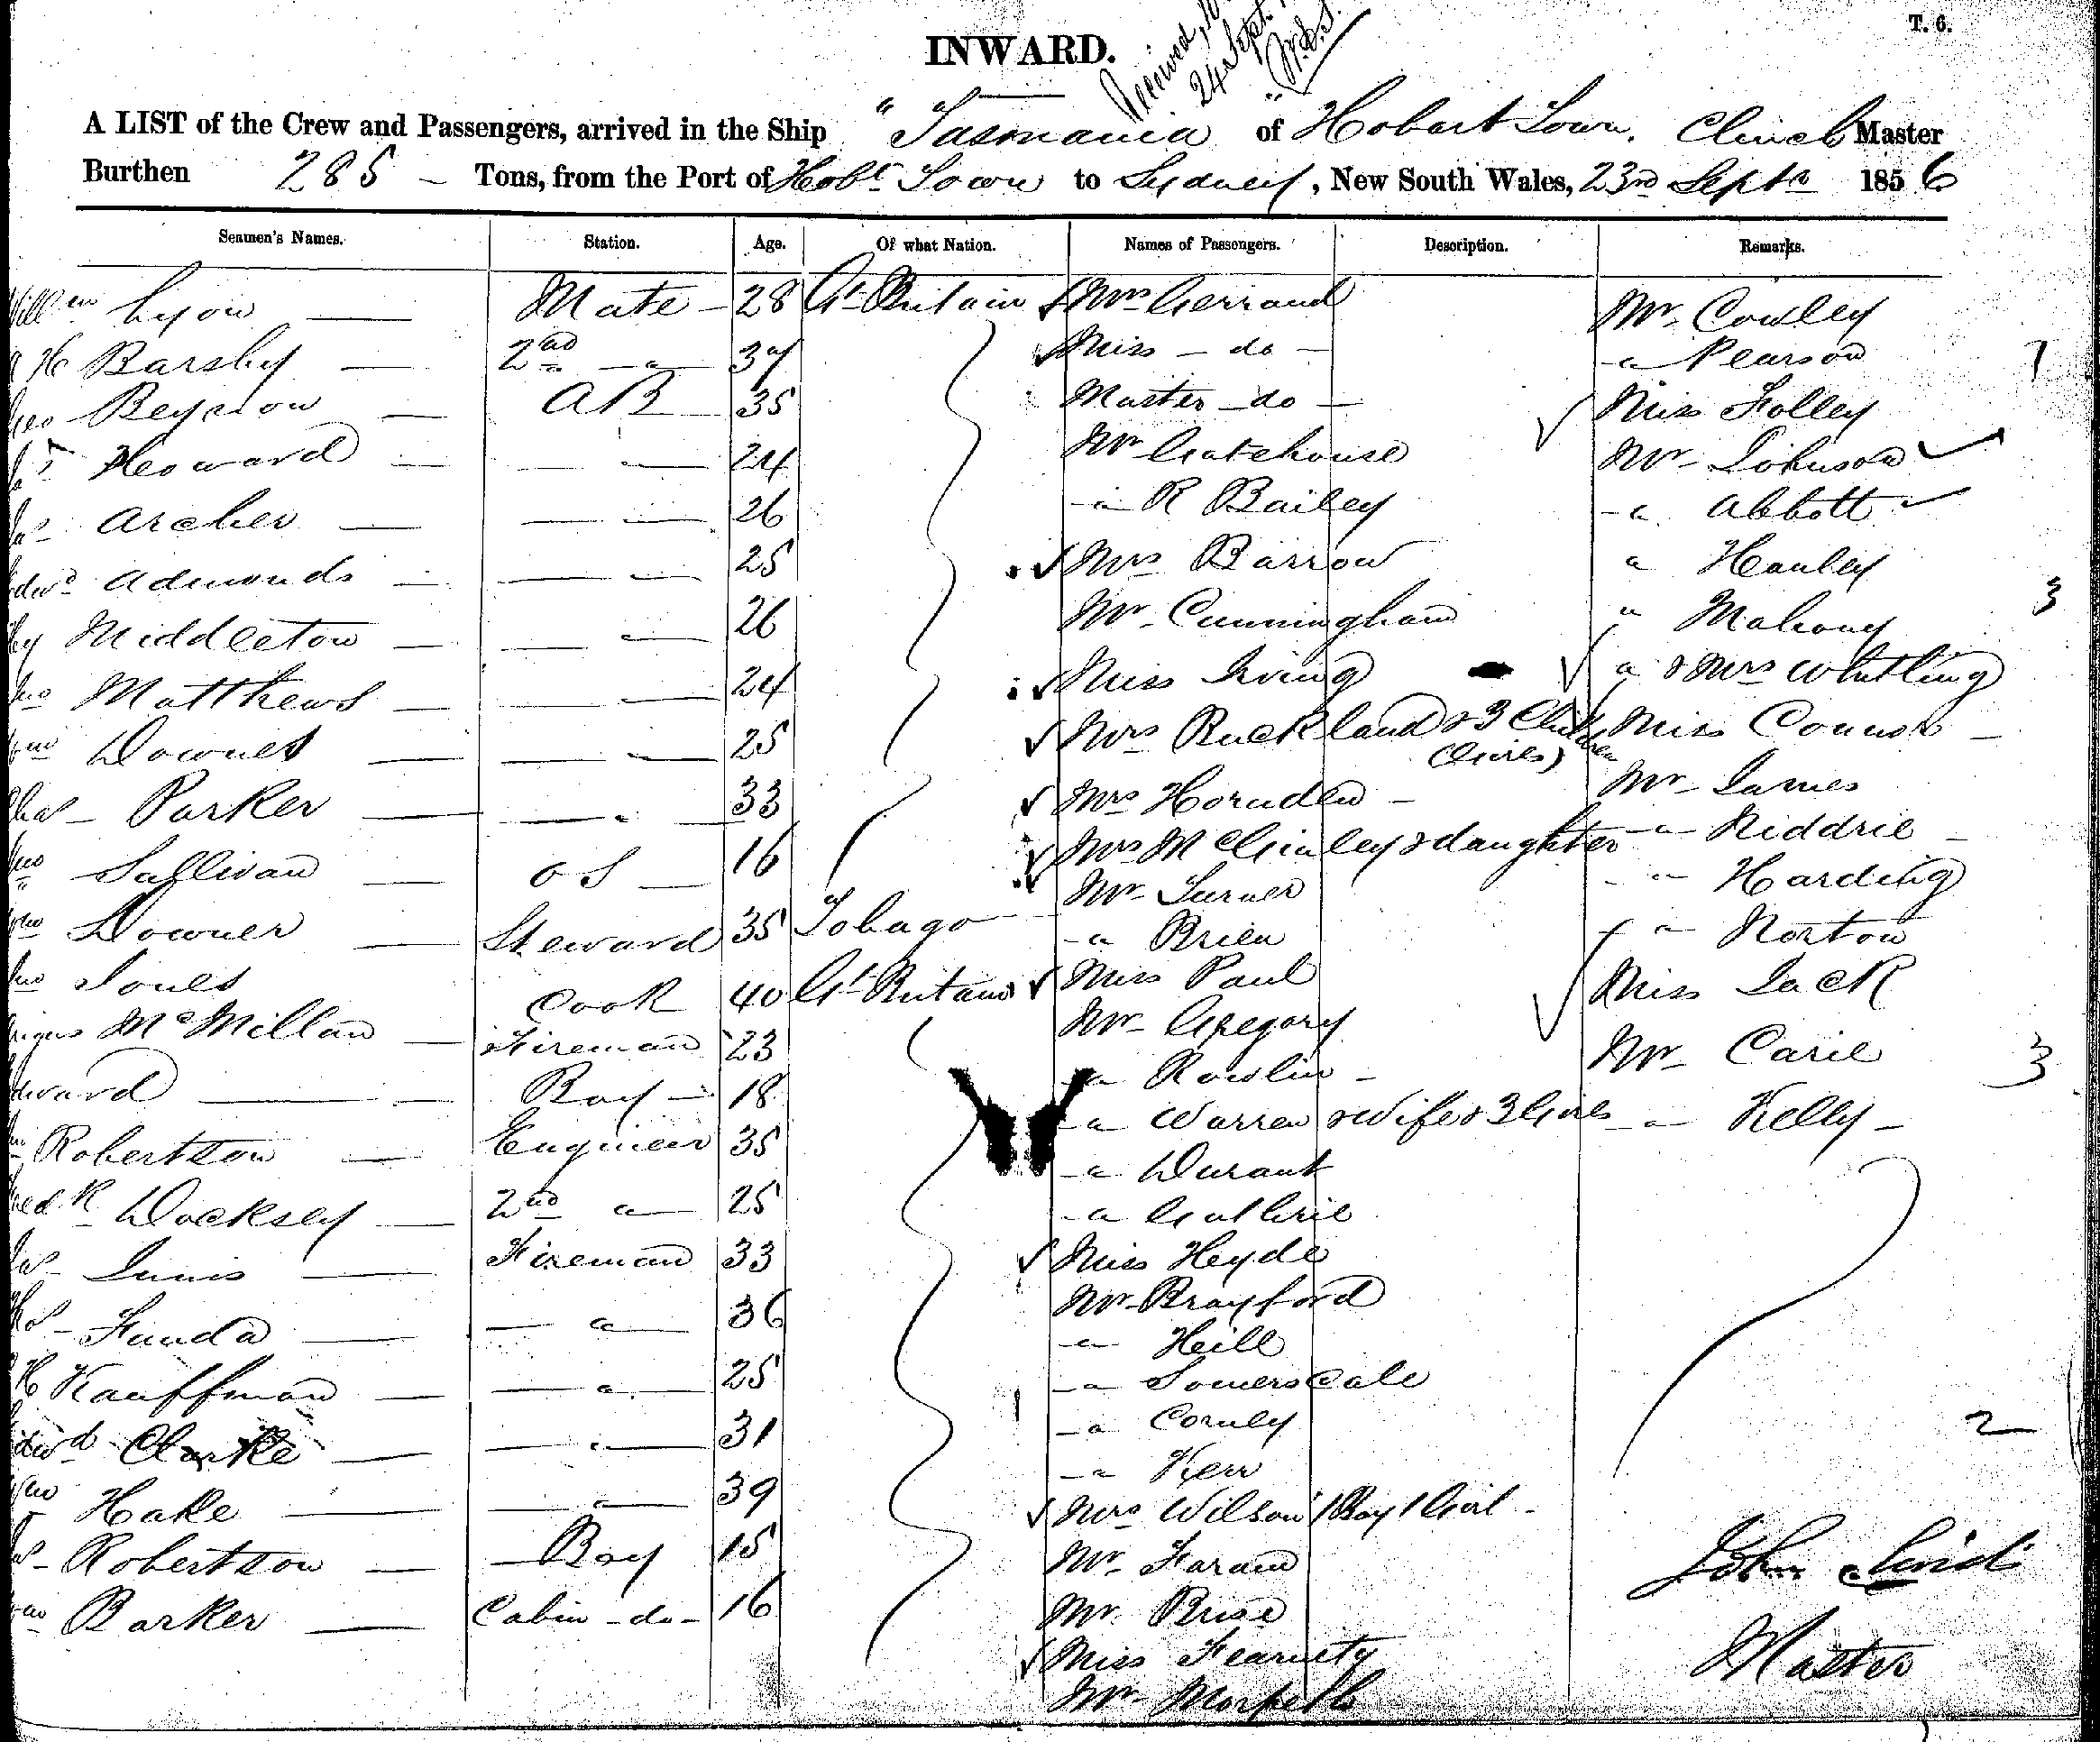 T. 6.
INWARD.
24 Sept.
A LIST of the Crew and Passengers, arrived in the Ship "Tasmania" of Hobart Town. Clinch Master
Burthen 285 - Tons, from the Port of Hobt Town to Sydney, New South Wales, 23rd Septr 1856
Seamen's Names. Station. Age. Of what Nation. Names of Passengers. Description. Remarks.
Lyon — Mate - 28 Gt Britain Mrs Gerrand Mr Cowley
H Barsby — 2nd " 37 Miss - do - " Pearson
Geo — AB 35 Master - do - Miss Folley
Howard — — 24 Mr Gatehouse Mr Johnson
Archer — — 26 " R Bailey " Abbott
Edwd Admonds — — 25 Mrs Barrow " Hanley
Hy Middleton — — 26 Mr Cunningham " Mahony 3
Matthews — — 24 Miss Irving " & Mrs Whitling
Downes — — 25 Mrs Buckland & 3 Children (Girls) Miss Connor
Chas Parker — — " 33 Mrs Hornden - Mr James
Sullivan — O S — 16 Mrs McGinley & daughter " Riddrie
Downer — Steward 35 Tobago Mr Turner " Harding
Jones Cook 40 Gt Britain " Brien " Norton
McMillan — Fireman 23 Miss Paul Miss Jack
Edward — Boy - 18 Mr Gregory Mr Carie 3
Robertson — Engineer 35 " Rowlin - " Kelly -
Fredk Docksey — 2nd " 25 " Warren & Wife & 3 Girls
Jas Innis — Fireman 33 " Durant
Funda — " 36 " Guthrie
H Kauffman — " 25 Miss Heyde
Edwd Clarke — " 31 Mr Brayford
Hake — " 39 " Heill
Robertson — Boy 15 " Somerscale
Barker — Cabin - do - 16 " Cornly
" Kerr
2
Mrs Wilson 1 Boy 1 Girl -
Mr Faram
Mr
Miss
Mr Morpeth
John Clinch
Master